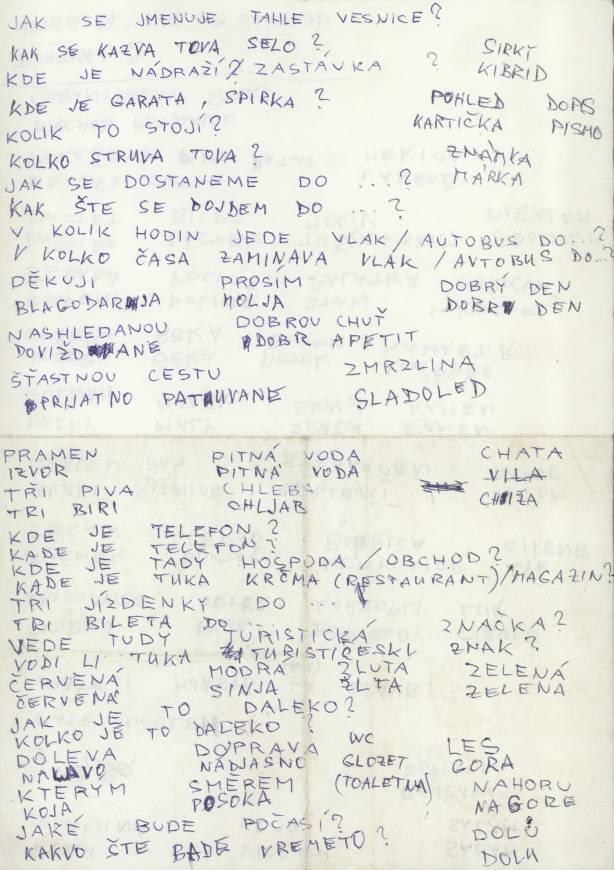 JAK SE JMENUJE TAHLE VESNICE?
KAK SE KAZVA TOVA SELO? SIRKY
KDE JE NÁDRAŽÍ / ZASTÁVKA ? KIBRID
KDE JE GARATA, SPIRKA? POHLED DOPIS
KOLIK TO STOJÍ? KARTIČKA PISMO
KOLKO STRUVA TOVA? ZNÁMKA
JAK SE DOSTANEME DO ...? MARKA
KAK ŠTE SE DOJDEM DO ?
V KOLIK HODIN JEDE VLAK AUTOBUS DO...?
V KOLKO ČASA ZAMINAVA VLAK / AVTOBUS DO...?
DĚKUJI PROSÍM DOBRÝ DEN
BLAGODARJA MOLJA DOBR DEN
NASHLEDANOU DOBROU CHUŤ
DOVIŽDANE DOBR APETIT
ŠŤASTNOU CESTU ZMRZLINA
PRIJATNO PATUVANE SLADOLED
PRAMEN PITNÁ VODA CHATA
IZVOR PITNA VODA VILA
TŘI PIVA CHLEBA CHIŽA
TRI BIRI CHLJAB
KDE JE TELEFON?
KADE JE TELEFON?
KDE JE TADY HOSPODA / OBCHOD?
KADE JE TUKA KRČMA (RESTAURANT)/MAGAZIN?
TŘI JÍZDENKY DO ...
TRI BILETA DO ...
VEDE TUDY TURISTICKÁ ZNAČKA?
VODI LI TUKA TURISTIČESKI ZNAK?
ČERVENÁ MODRÁ ŽLUTÁ ZELENÁ
ČERVENA SINJA ŽLTA ZELENA
JAK JE TO DALEKO?
KOLKO JE TO DALEKO?
DOLEVA DOPRAVA WC LES
NALAVO NADJASNO GLOZET GORA
KTERÝM SMĚREM (TOALETNA) NAHORU
KOJA POSOKA NAGORE
JAKÉ BUDE POČASÍ? DOLŮ
KAKVO ŠTE BADE VREMETO? DOLU